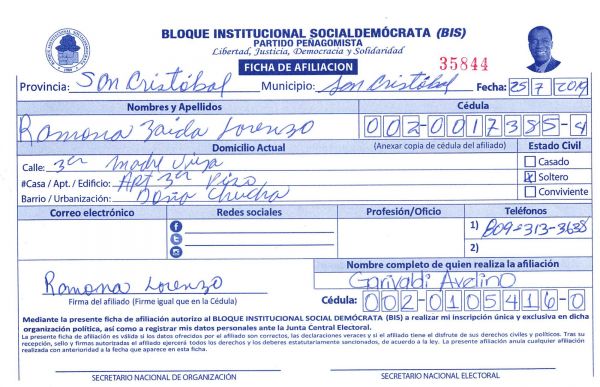 BLOQUE INSTITUCIONAL SOCIALDEMÓCRATA (BIS)
PARTIDO PEÑAGOMISTA
Libertad, Justicia, Democracia y Solidaridad
FICHA DE AFILIACION
35844
Provincia: San Cristóbal Municipio: San Cristóbal Fecha: 25 7 2019
Nombres y Apellidos Cédula
Ramona Zaida Lorenzo 002-0017385-4
Domicilio Actual (Anexar copia de cédula del afiliado) Estado Civil
Calle: 3er Madre Vieja
Casado
#Casa / Apt. / Edificio: Apt 3er Piso
X Soltero
Barrio / Urbanización: Doña Chucha
Conviviente
Correo electrónico Redes sociales Profesión/Oficio Teléfonos
1) 809-313-3638
2)
Nombre completo de quien realiza la afiliación
Ramona Lorenzo Garivaldi Avelino
Firma del afiliado (Firme igual que en la Cédula) Cédula: 002-0105416-0
Mediante la presente ficha de afiliación autorizo al BLOQUE INSTITUCIONAL SOCIAL DEMÓCRATA (BIS) a realizar mi inscripción única y exclusiva en dicha
organización política, así como a registrar mis datos personales ante la Junta Central Electoral.
La presente ficha de afiliación es válida si los datos ofrecidos por el afiliado son correctos, las declaraciones veraces y si el afiliado tiene el disfrute de sus derechos civiles y políticos. Tras su
recepción, sello y firmas autorizadas el afiliado ejercerá todos los derechos y los deberes estatutariamente sancionados, de acuerdo a la ley. La presente afiliación anula cualquier afiliación
realizada con anterioridad a la fecha que aparece en esta ficha.
SECRETARIO NACIONAL DE ORGANIZACIÓN SECRETARIO NACIONAL ELECTORAL